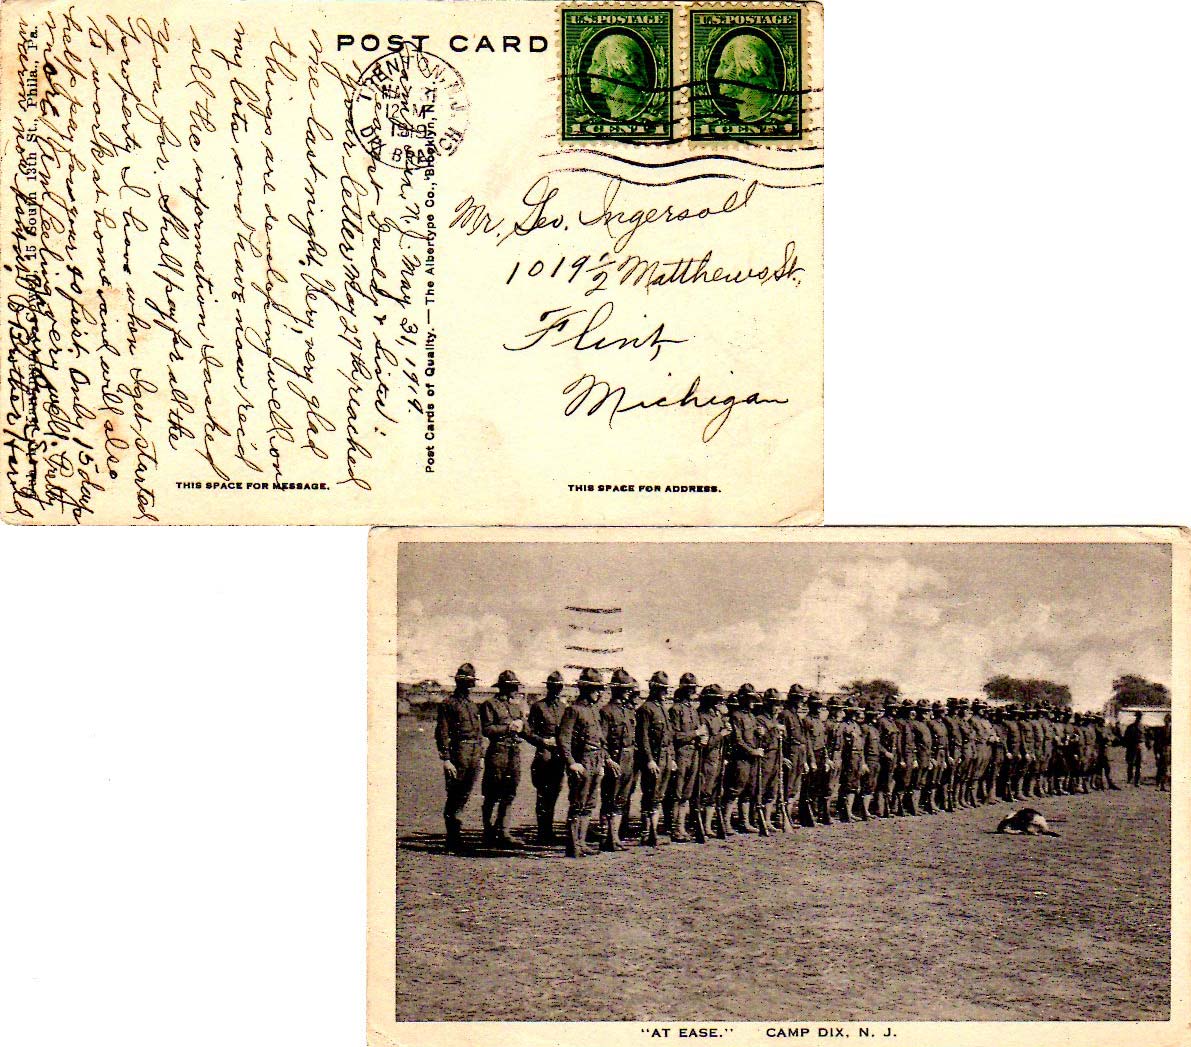 POST CARD
U.S.POSTAGE
1 CENT 1
U.S.POSTAGE
1 CENT 1
TRENTON, N.J.
12 M
1919
DIX BRANCH
Camp Dix, N.J. May 31, 1919.
Dearest Daddy & Sister:
Your letter May 27th reached
me last night. Very, very glad
things are developing well on
my lots and have now rec'd
all the information I asked
you for. Shall pay for all the
property I have when I get started
to work at home and will also
help pay for yours first. Only 15 days
more. Am feeling very well.
& Brother, Harold
Post Cards of Quality. — The Albertype Co., Brooklyn, N.Y.
15 South 13th St., Phila., Pa.
Mr. Geo. Ingersoll
1019½ Matthews St.,
Flint,
Michigan
THIS SPACE FOR MESSAGE.
THIS SPACE FOR ADDRESS.
"AT EASE." CAMP DIX, N. J.